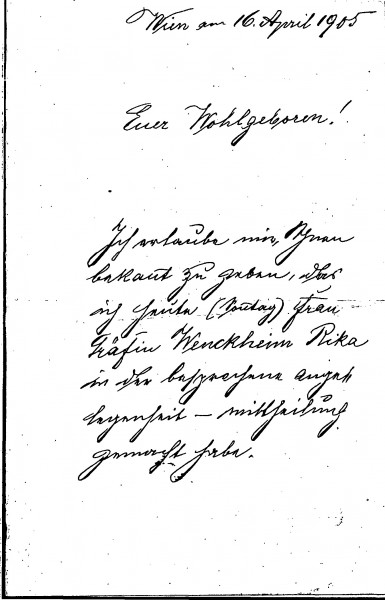 Wien am 16. April 1905
Euer Wohlgeboren!
Ich erlaube mir, Ihnen
bekant zu geben, das
ich heute (Sontag) Frau
Gräfin Wenckheim Rika
in der besprochene ange-
legenheit – mittheilung
gemacht habe.